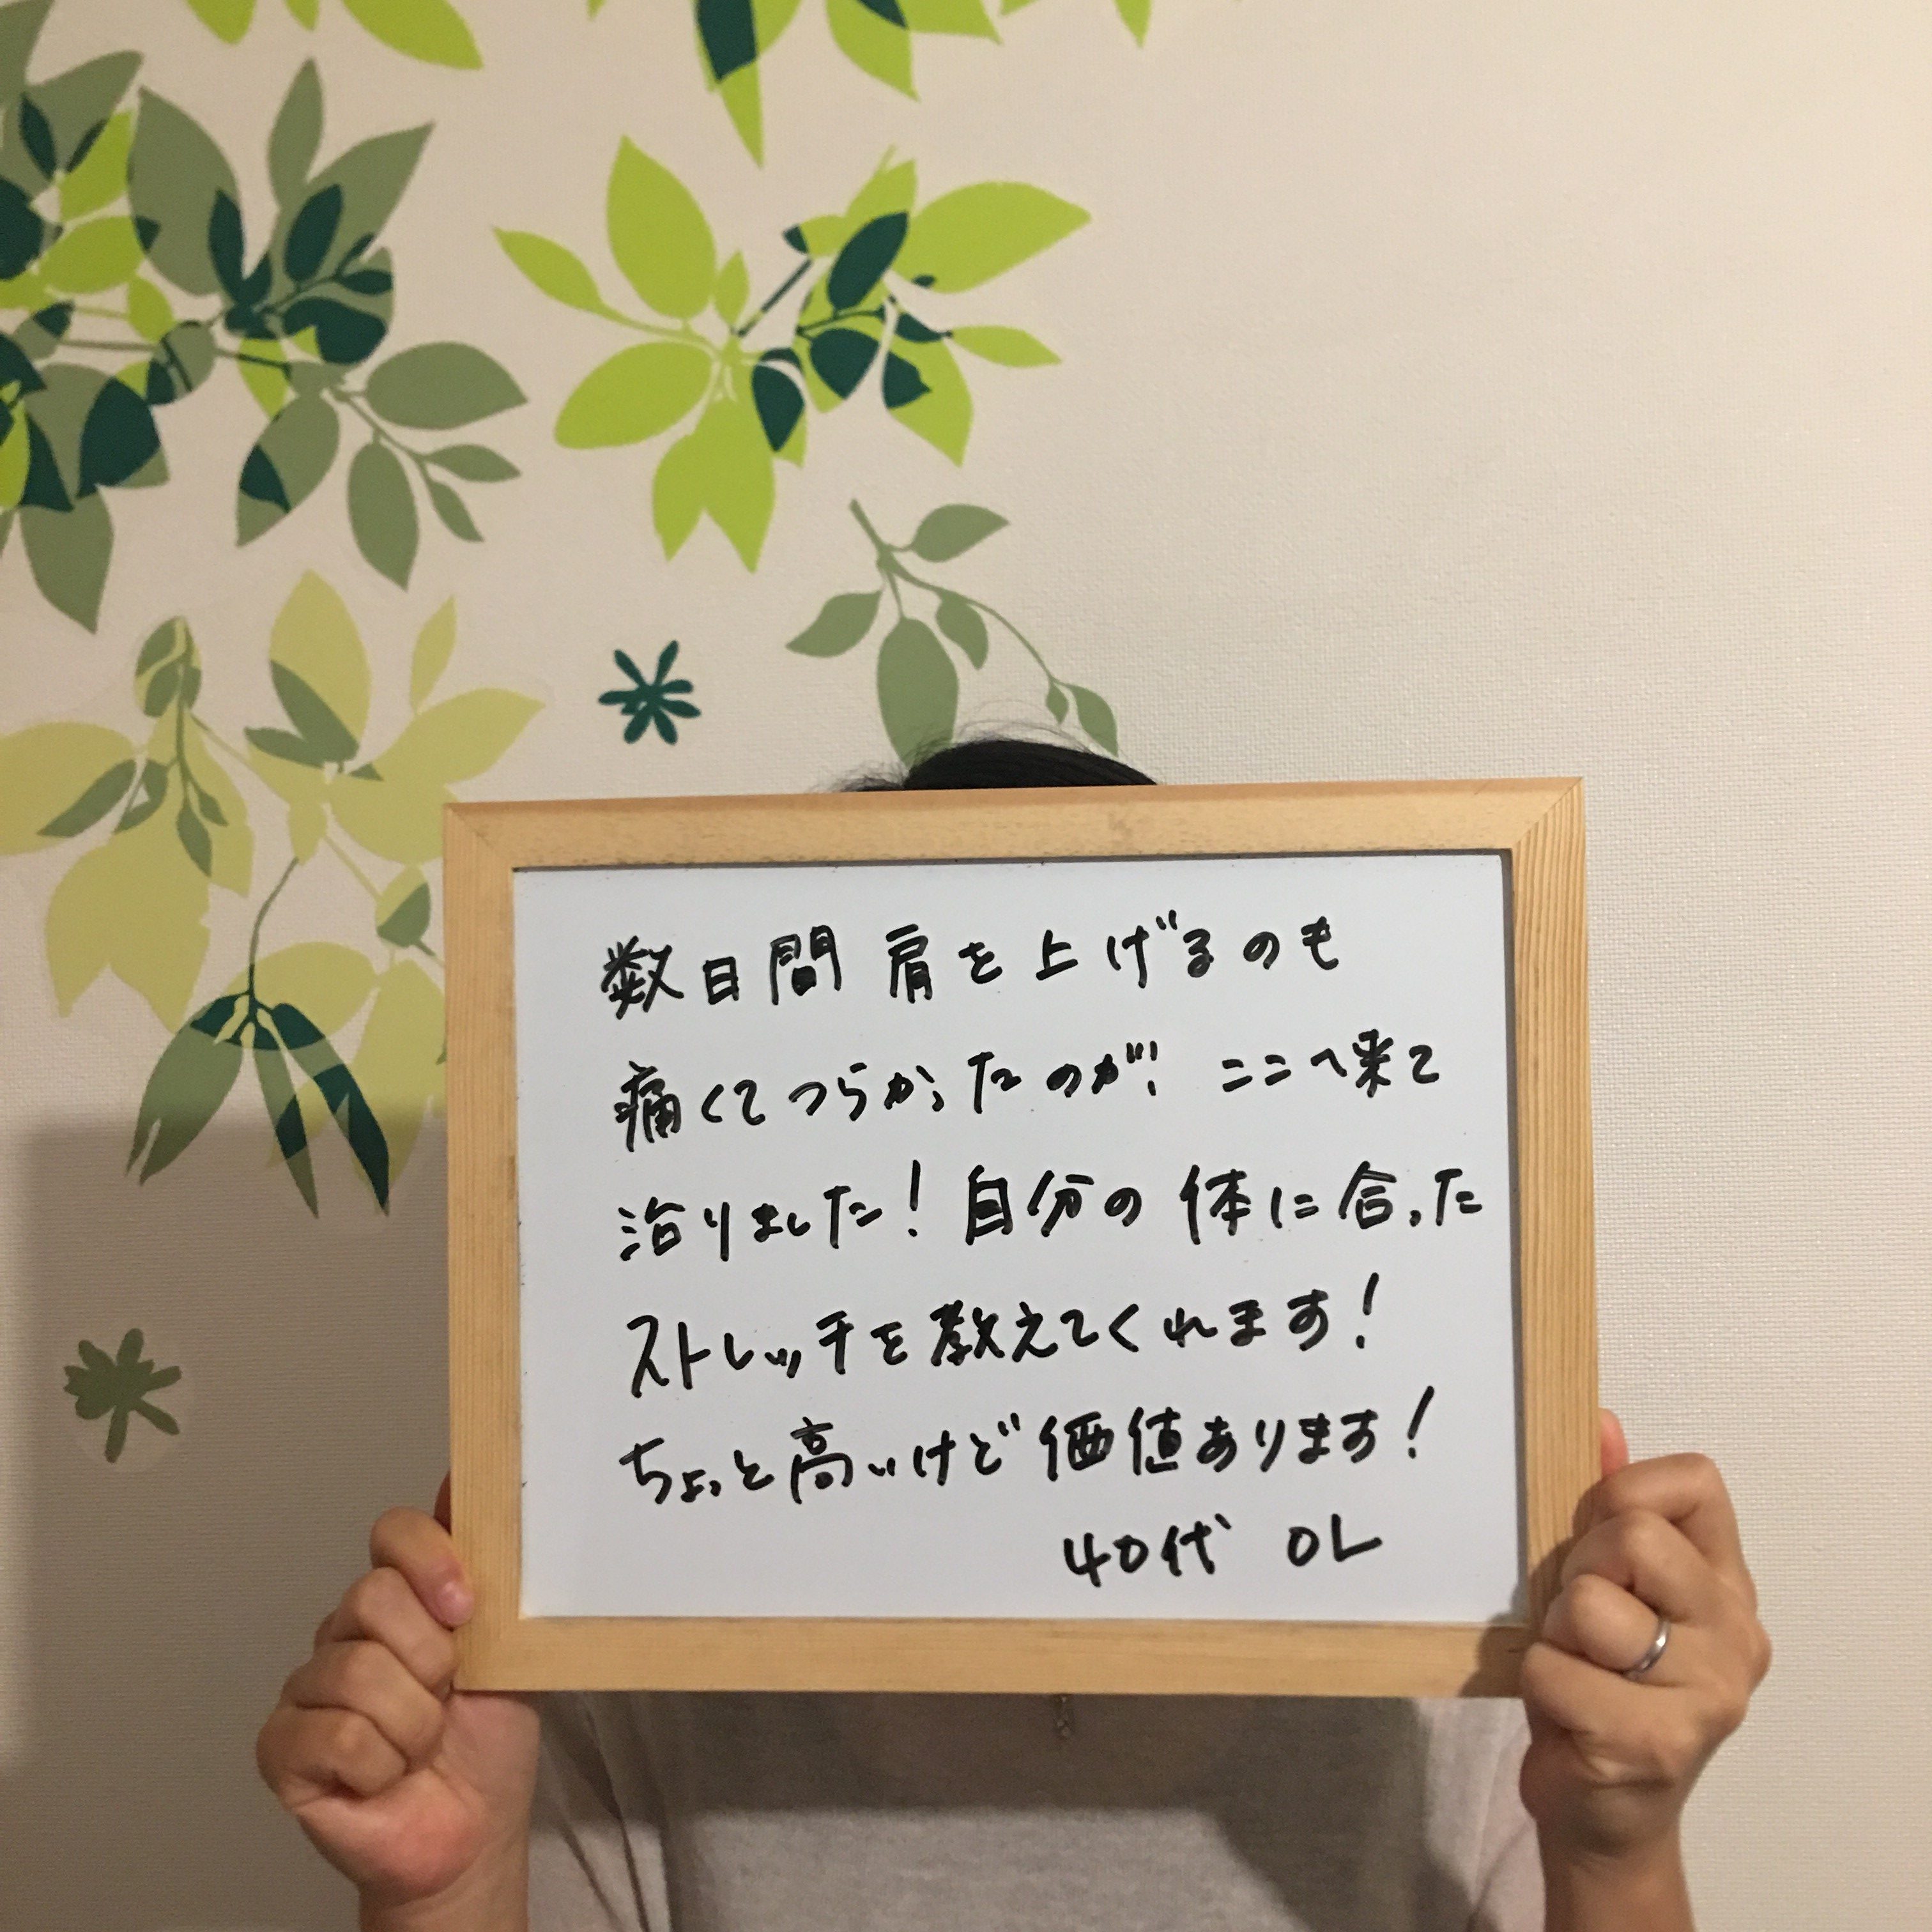 数日間 肩を上げるのも
痛くてつらかったのが! ここへ来て
治りました! 自分の体に合った
ストレッチを教えてくれます!
ちょっと高いけど価値あります!
40代 OL